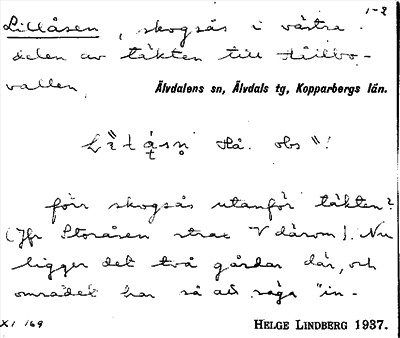 1-2
Lillåsen, skogsås i västra
delen av täkten till Håilbo-
vallen,
Älvdalens sn, Älvdals tg, Kopparbergs län.
Hå. obs "!
förr skogsås utanför täkten?
(Jfr Storåsen strax V därom). Nu
ligger det två gårdar där, och
området har så att säga "in-
XI 169
HELGE LINDBERG 1937.